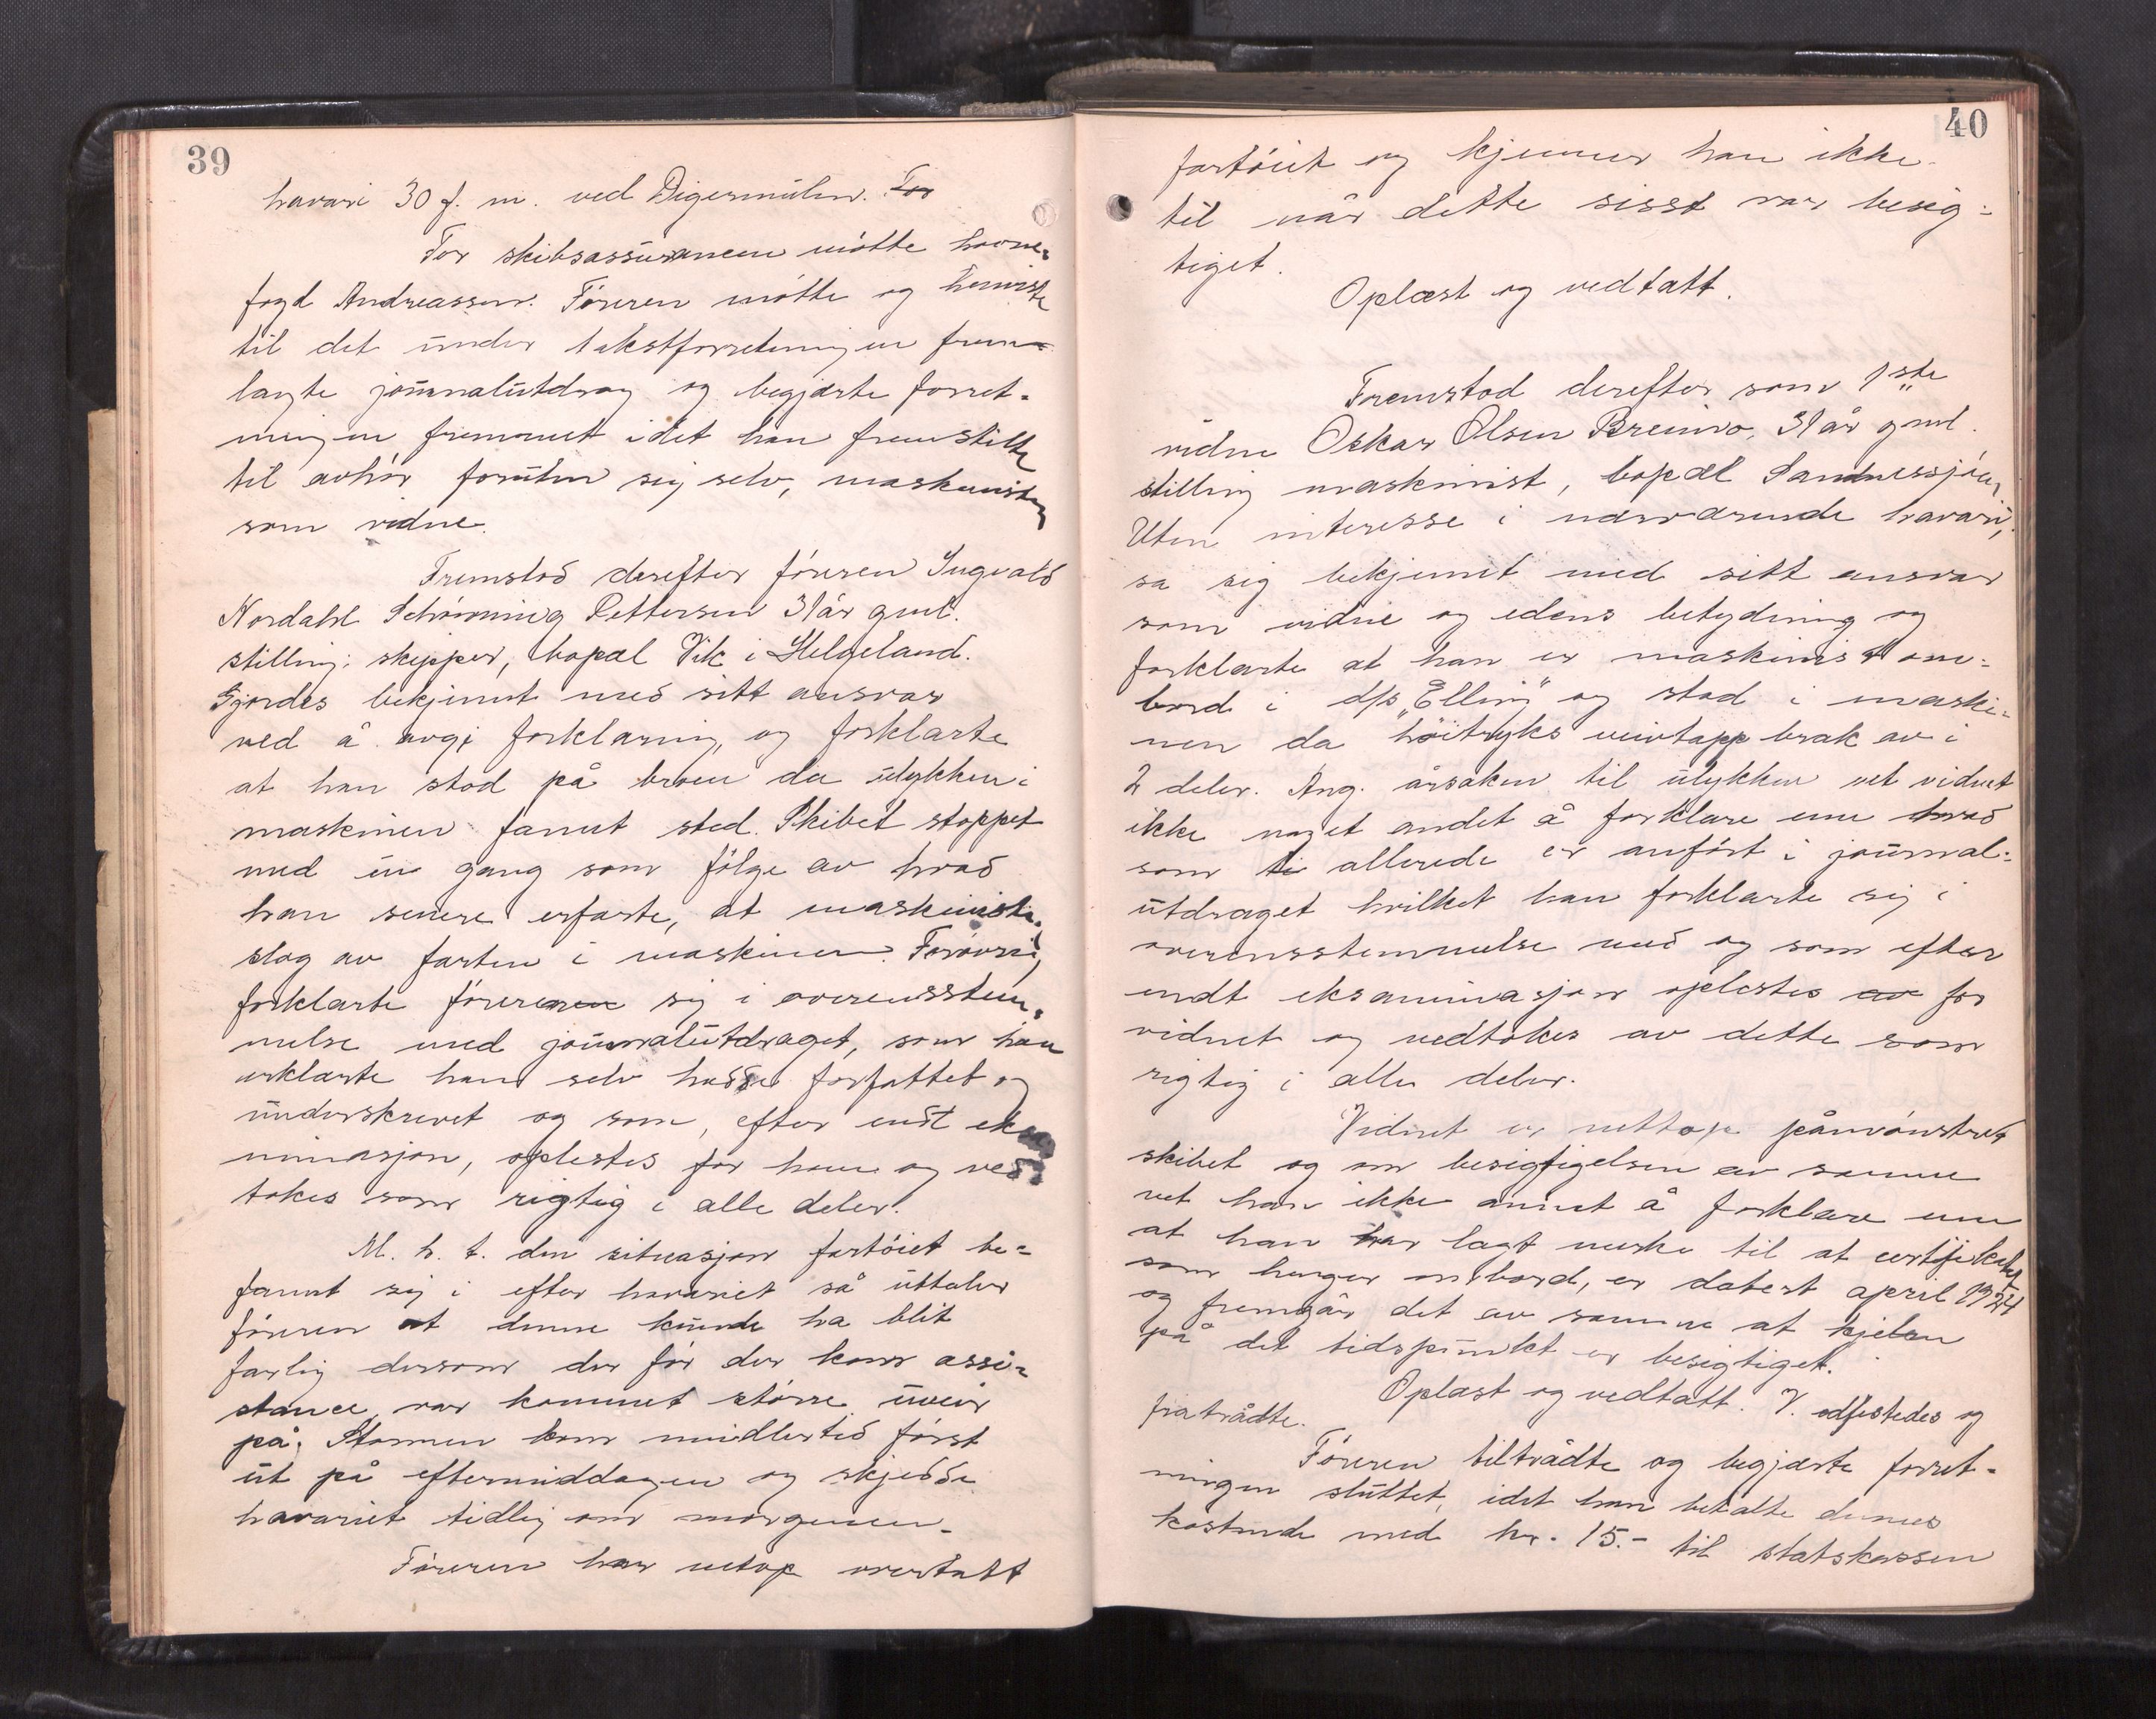 39
havari 30 f. m. ved Digermulen. For
For skibsassuransen møtte havne-
fogd Andreassen. Føreren møtte og henviste
til det under takstforretningen frem-
lagte journalutdrag og begjærte forret-
ningen fremmet idet han fremstillte
til avhør foruten sig selv, maskinisten
som vidne.
Fremstod derefter føreren Ingvald
Nordahl Schrønning Pettersen 31 år gml.
stilling: skipper, bopæl Vik i Helgeland.
Gjordes bekjennt med sitt ansvar
ved å avgi forklaring, og forklarte
at han stod på broen da ulykken i
maskinen fannt sted. Skibet stoppet
med en gang som følge av hvad
han senere erfarte, at maskinisten
slog av farten i maskinen. Forøvrig
forklarte føreren sig i overensstem-
melse med journalutdraget, som han
erklærte han selv hadde forfattet og
underskrevet og som, efter endt eksa
minasjon, oplestes for ham og ved-
tokes som rigtig i alle deler.
M. h. t. den situasjon fartøiet be-
fannt sig i efter havariet så uttaler
føreren at denne kunde ha blit
farlig dersom der før der kom assi-
stance var kommet større uveir
på. Stormen kom imidlertid først
ut på eftermiddagen og skjedde
havariet tidlig om morgenen.
Føreren har netop overtatt
40
fartøiet og kjenner han ikke
til når dette sisst var besig-
tiget.
Oplæst og vedtatt.
Fremstod derefter som 1ste
vidne Oskar Olsen Breimo, 31 år gml.
stilling maskinist, bopæl Sandnessjøen,
Uten interesse i nærværende havari,
sa sig bekjennt med sitt ansvar
som vidne og edens betydning og
forklarte at han er maskinist om-
bord i d/s "Elling" og stod i maski-
nen da høitryks veivtapp brak av i
2 deler. Ang. årsaken til ulykken vet vidnet
ikke noget andet å forklare enn hvad
som allerede er anført i journal-
utdraget hvilket han forklarte sig i
overensstemmelse med og som efter
endt eksaminasjon oplestes av for
vidnet og vedtokes av dette som
rigtig i alle deler.
Vidnet er nettop påmønstret
skibet og om besigtigelsen av samme
vet han ikke annet å forklare enn
at han har lagt merke til at certifikatet
som henger ombord, er datert april 1924
og fremgår det av samme at kjelen
på det tidspunkt er besigtiget.
Oplæst og vedtatt. V. edfestedes og
fratrådte.
Føreren tiltrådte og begjærte forret-
ningen sluttet, idet han betalte dennes
kostende med kr. 15.- til statskassen